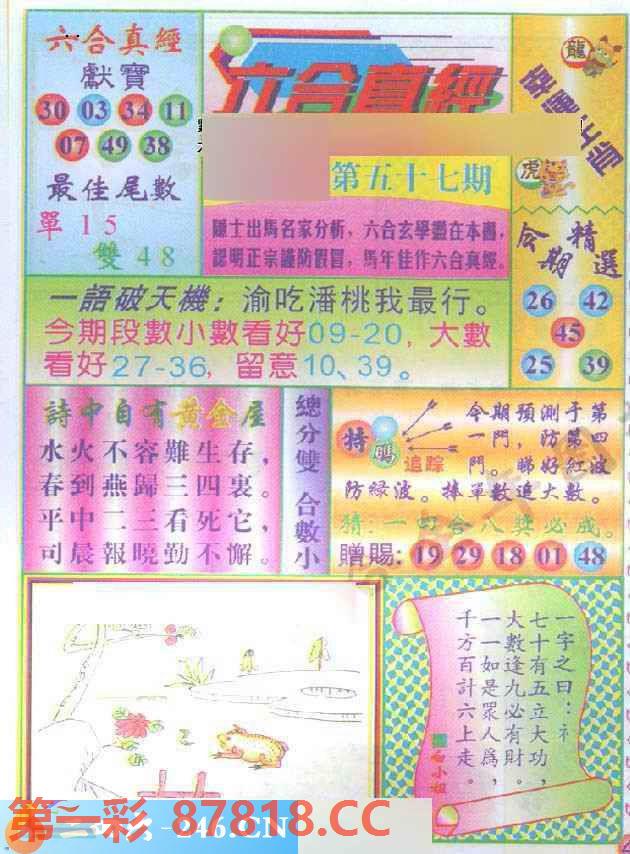 六合真經
獻寶
30 03 34 11
07 49 38
最佳尾數
單 1 5
雙 4 8
六合真經
第五十七期
隱士出馬名家分析，六合玄學盡在本圖，
認明正宗謹防假冒，馬年佳作六合真經。
龍
虎
今期精選
26 42
45
25 39
一語破天機：渝吃潘桃我最行。
今期段數小數看好09-20，大數
看好27-36，留意10、39。
詩中自有黃金屋
水火不容難生存，
春到燕歸三四裏。
平中二三看死它，
司晨報曉勤不懈。
總分雙 合數小
特碼
追踪
今期預測于第
一門，防第四
門。睇好紅波
防綠波。捧單數追大數。
猜:一四合八獎必成。
贈賜: 19 29 18 01 48
一字之曰：礻
七十有五立大功，
大數逢九必有財。
一一如是眾人為，
千方百計六上走。
白小姐
第一彩 87818.CC
-246.CN